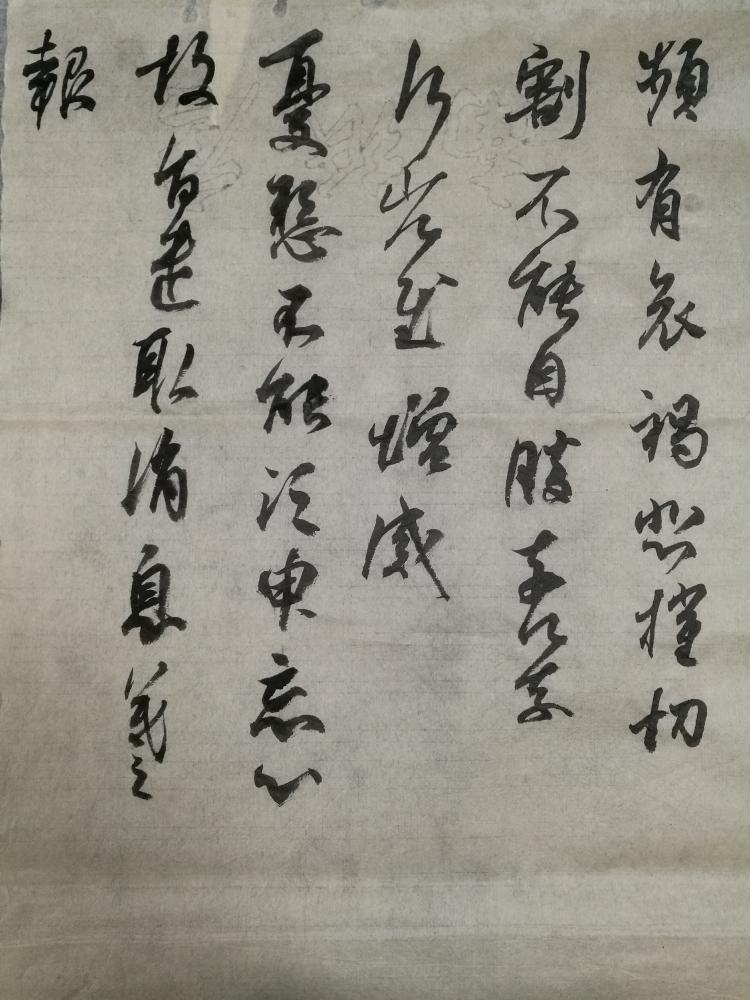 頻有哀禍悲摧切
割不能自勝奈何奈
何省慰增感
憂懸不能須臾忘心
故旨遣取消息羲之
報